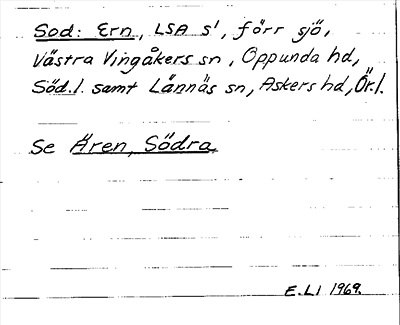 Sod: Ern, LSA s', förr sjö,
Västra Vingåkers sn, Oppunda hd,
Söd.l. samt Lännäs sn, Askers hd, Ör.l.
Se Ären, Södra
E.LI 1969.